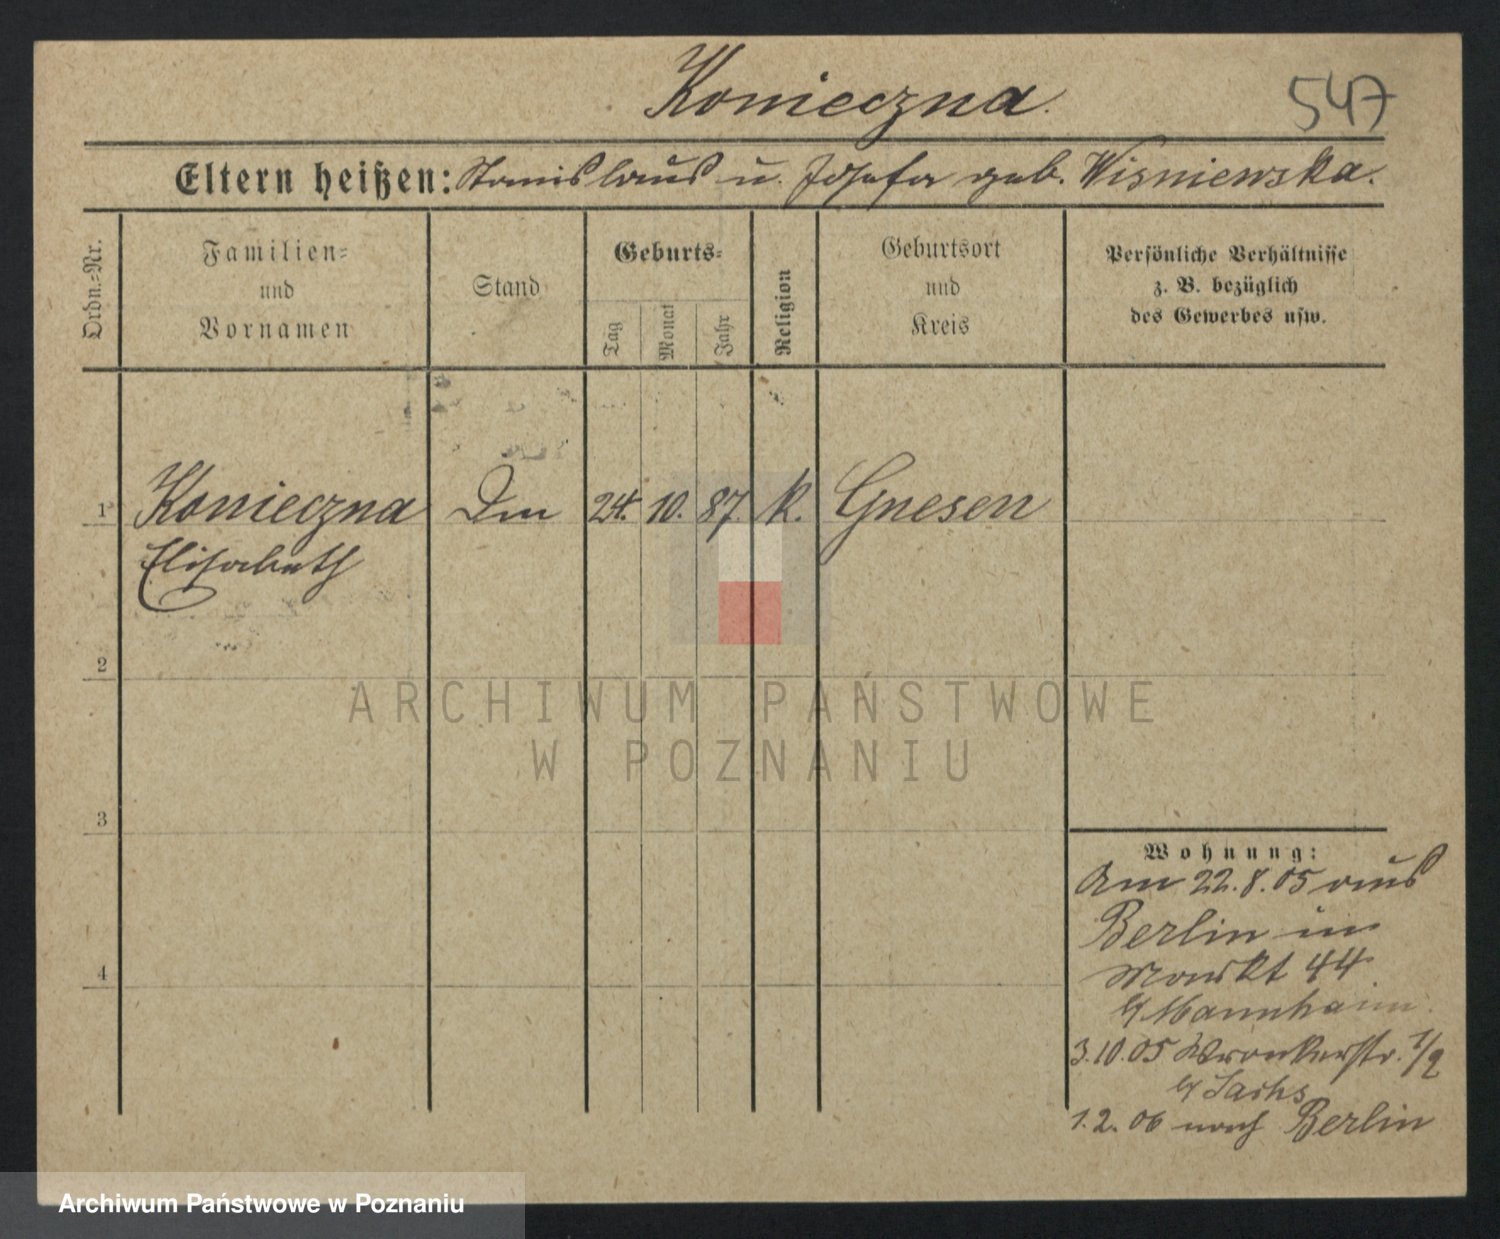 Konieczna.
547
Eltern heißen: Stanislaus u. Josefa geb. Wisniewska.
Ordn.-Nr.
Familien-
und
Vornamen
Stand
Geburts-
Tag
Monat
Jahr
Religion
Geburtsort
und
Kreis
Persönliche Verhältnisse
z. B. bezüglich
des Gewerbes usw.
1 Konieczna 24. 10. 87. k. Gnesen
Elisabeth
2
ARCHIWUM PAŃSTWOWE
W POZNANIU
3
4
Wohnung:
Am 22.8.05 aus
Berlin in
Markt 44
b/ Mannheim.
3.10.05 Wronkerstr. 1/2
b/ Sachs
1.2.06 nach Berlin
Archiwum Państwowe w Poznaniu